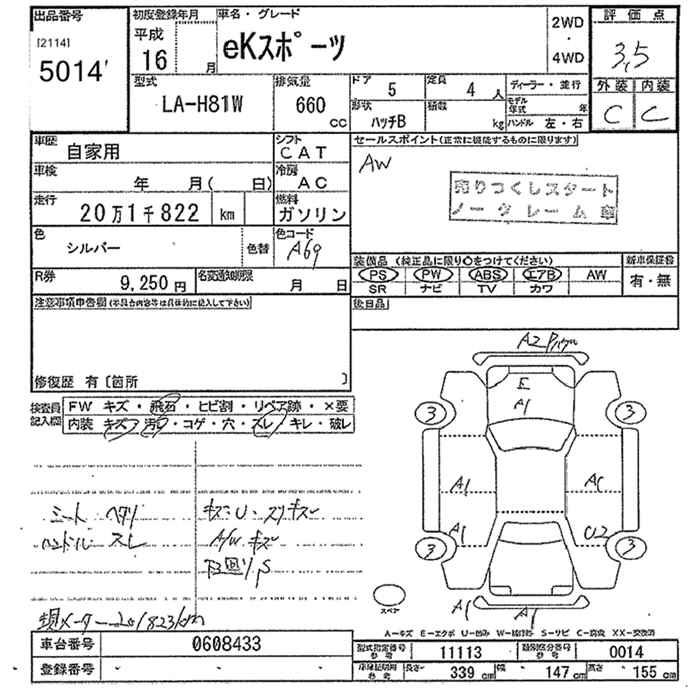 出品番号
[2114]
5014'
初度登録年月
平成
16 月
車名・グレード
eKスポーツ
2WD
・
4WD
評価点
3,5
外装 内装
C C
型式
LA-H81W
排気量
660
CC
ドア
5
定員
4 人
形状
ハッチB
積載
kg
ディーラー・並行
モデル年式 年
ハンドル 左・右
車歴
自家用
シフト
CAT
車検
年 月( 日)
冷房
AC
走行
20万1千822 km
燃料
ガソリン
色
シルバー
色替
色コード
A69
R券
9,250円
名変通知期限
月 日
セールスポイント(正常に機能するものに限ります)
AW
売りつくしスタート
ノークレーム車
装備品 (純正品に限り○をつけてください)
PS PW ABS エアB AW
SR ナビ TV カワ
新車保証書
有・無
後日品
注意事項申告欄(不具合内容等は具体的に記入して下さい)
修復歴 有〔箇所 〕
検査員記入欄
FW キズ・飛石・ヒビ割・リペア跡・×要
内装 キズ・汚レ・コゲ・穴・スレ・キレ・破レ
シート ヘタリ
ハンドル スレ
キズ・U・スリキズ
A/W キズ
下回り S
A2
E
A1
3 3
A1
A1
3 U2 3
A1 A1
スペア
現メーター 201823km
A-キズ E-エクボ U-凹み W-補修跡 S-サビ C-腐食 XX-交換済
車台番号
0608433
登録番号
型式指定番号 参考
11113
類別区分番号 参考
0014
車検証記載 参考
長さ 339 cm
幅 147 cm
高さ 155 cm